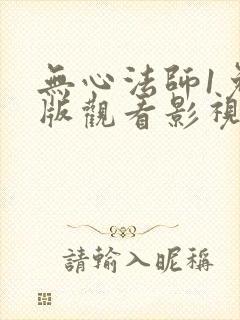 無心法師1免
版觀看影視
請輸入昵稱